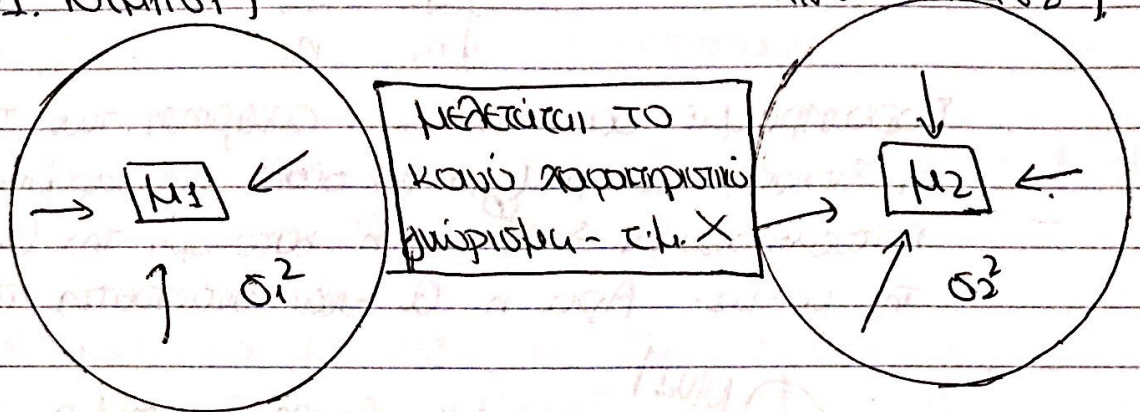 μελετάται το
κοινό χαρακτηριστικό
γνώρισμα - τ.μ. X
μ1
σ1²
μ2
σ2²